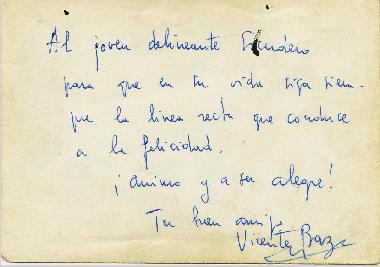 Al joven delineante Escudero
para que en tu vida siga siem-
pre la linea recta que conduce
a la felicidad.
¡Animo y a ser alegre!
Tu buen amigo
Vicente Baz